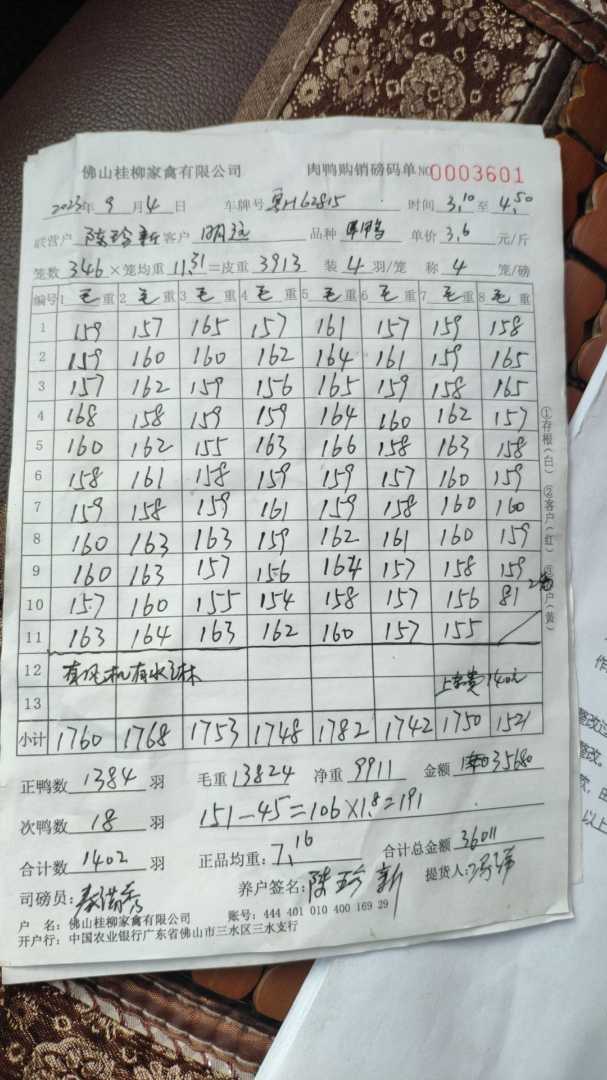 佛山桂柳家禽有限公司 肉鸭购销磅码单 NO 0003601
2023年 9 月 4 日 车牌号 粤H62815 时间 3.10 至 4.50
联营户 陈珍新 客户 明远 品种 单价 3.6 元/斤
笼数 346 ×笼均重 11.31 =皮重 3913 装 4 羽/笼 称 4 笼/磅
编号 1 毛 重 2 毛 重 3 毛 重 4 毛 重 5 毛 重 6 毛 重 7 毛 重 8 毛 重
1 159 157 165 157 161 157 159 158
2 159 160 160 162 164 161 159 165
3 157 162 159 156 165 159 158 165
4 168 158 159 159 164 160 162 157
5 160 162 155 163 166 158 163 158
6 158 161 158 159 159 157 160 159
7 159 158 159 161 159 158 160 160
8 160 163 163 159 162 161 160 159
9 160 163 157 156 164 157 158 159
10 157 160 155 154 158 157 156 81
11 163 164 163 162 160 157 155
12 有风机有水淋
13 140元
小计 1760 1768 1753 1748 1782 1742 1750 1521
正鸭数 1384 羽 毛重 13824 净重 9911 金额 35680
次鸭数 18 羽 151-45=106×1.8=191
合计数 1402 羽 正品均重: 7.16 合计总金额 36011
司磅员: 养户签名: 陈珍新 提货人:
户 名: 佛山桂柳家禽有限公司 账号: 444 401 010 400 169 29
开户行: 中国农业银行广东省佛山市三水区三水支行
①存根(白) ②客户(红) 户(黄)
整改
整改。
以上